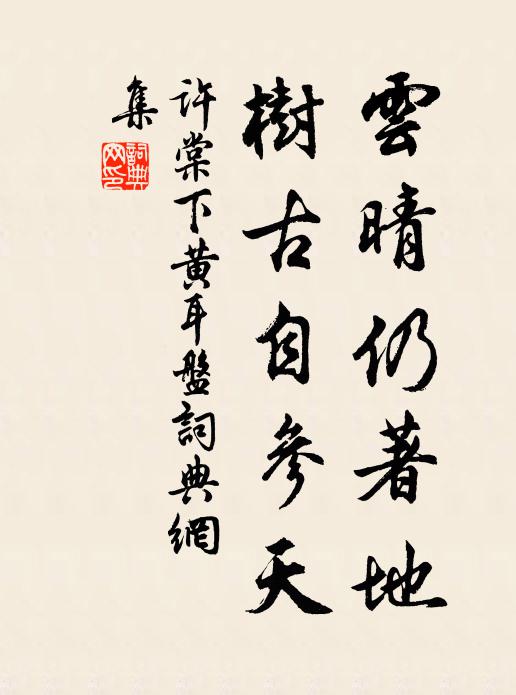 雲晴仍著地
樹古自參天
許棠下黃耳盤詞典網
集
詞典網印